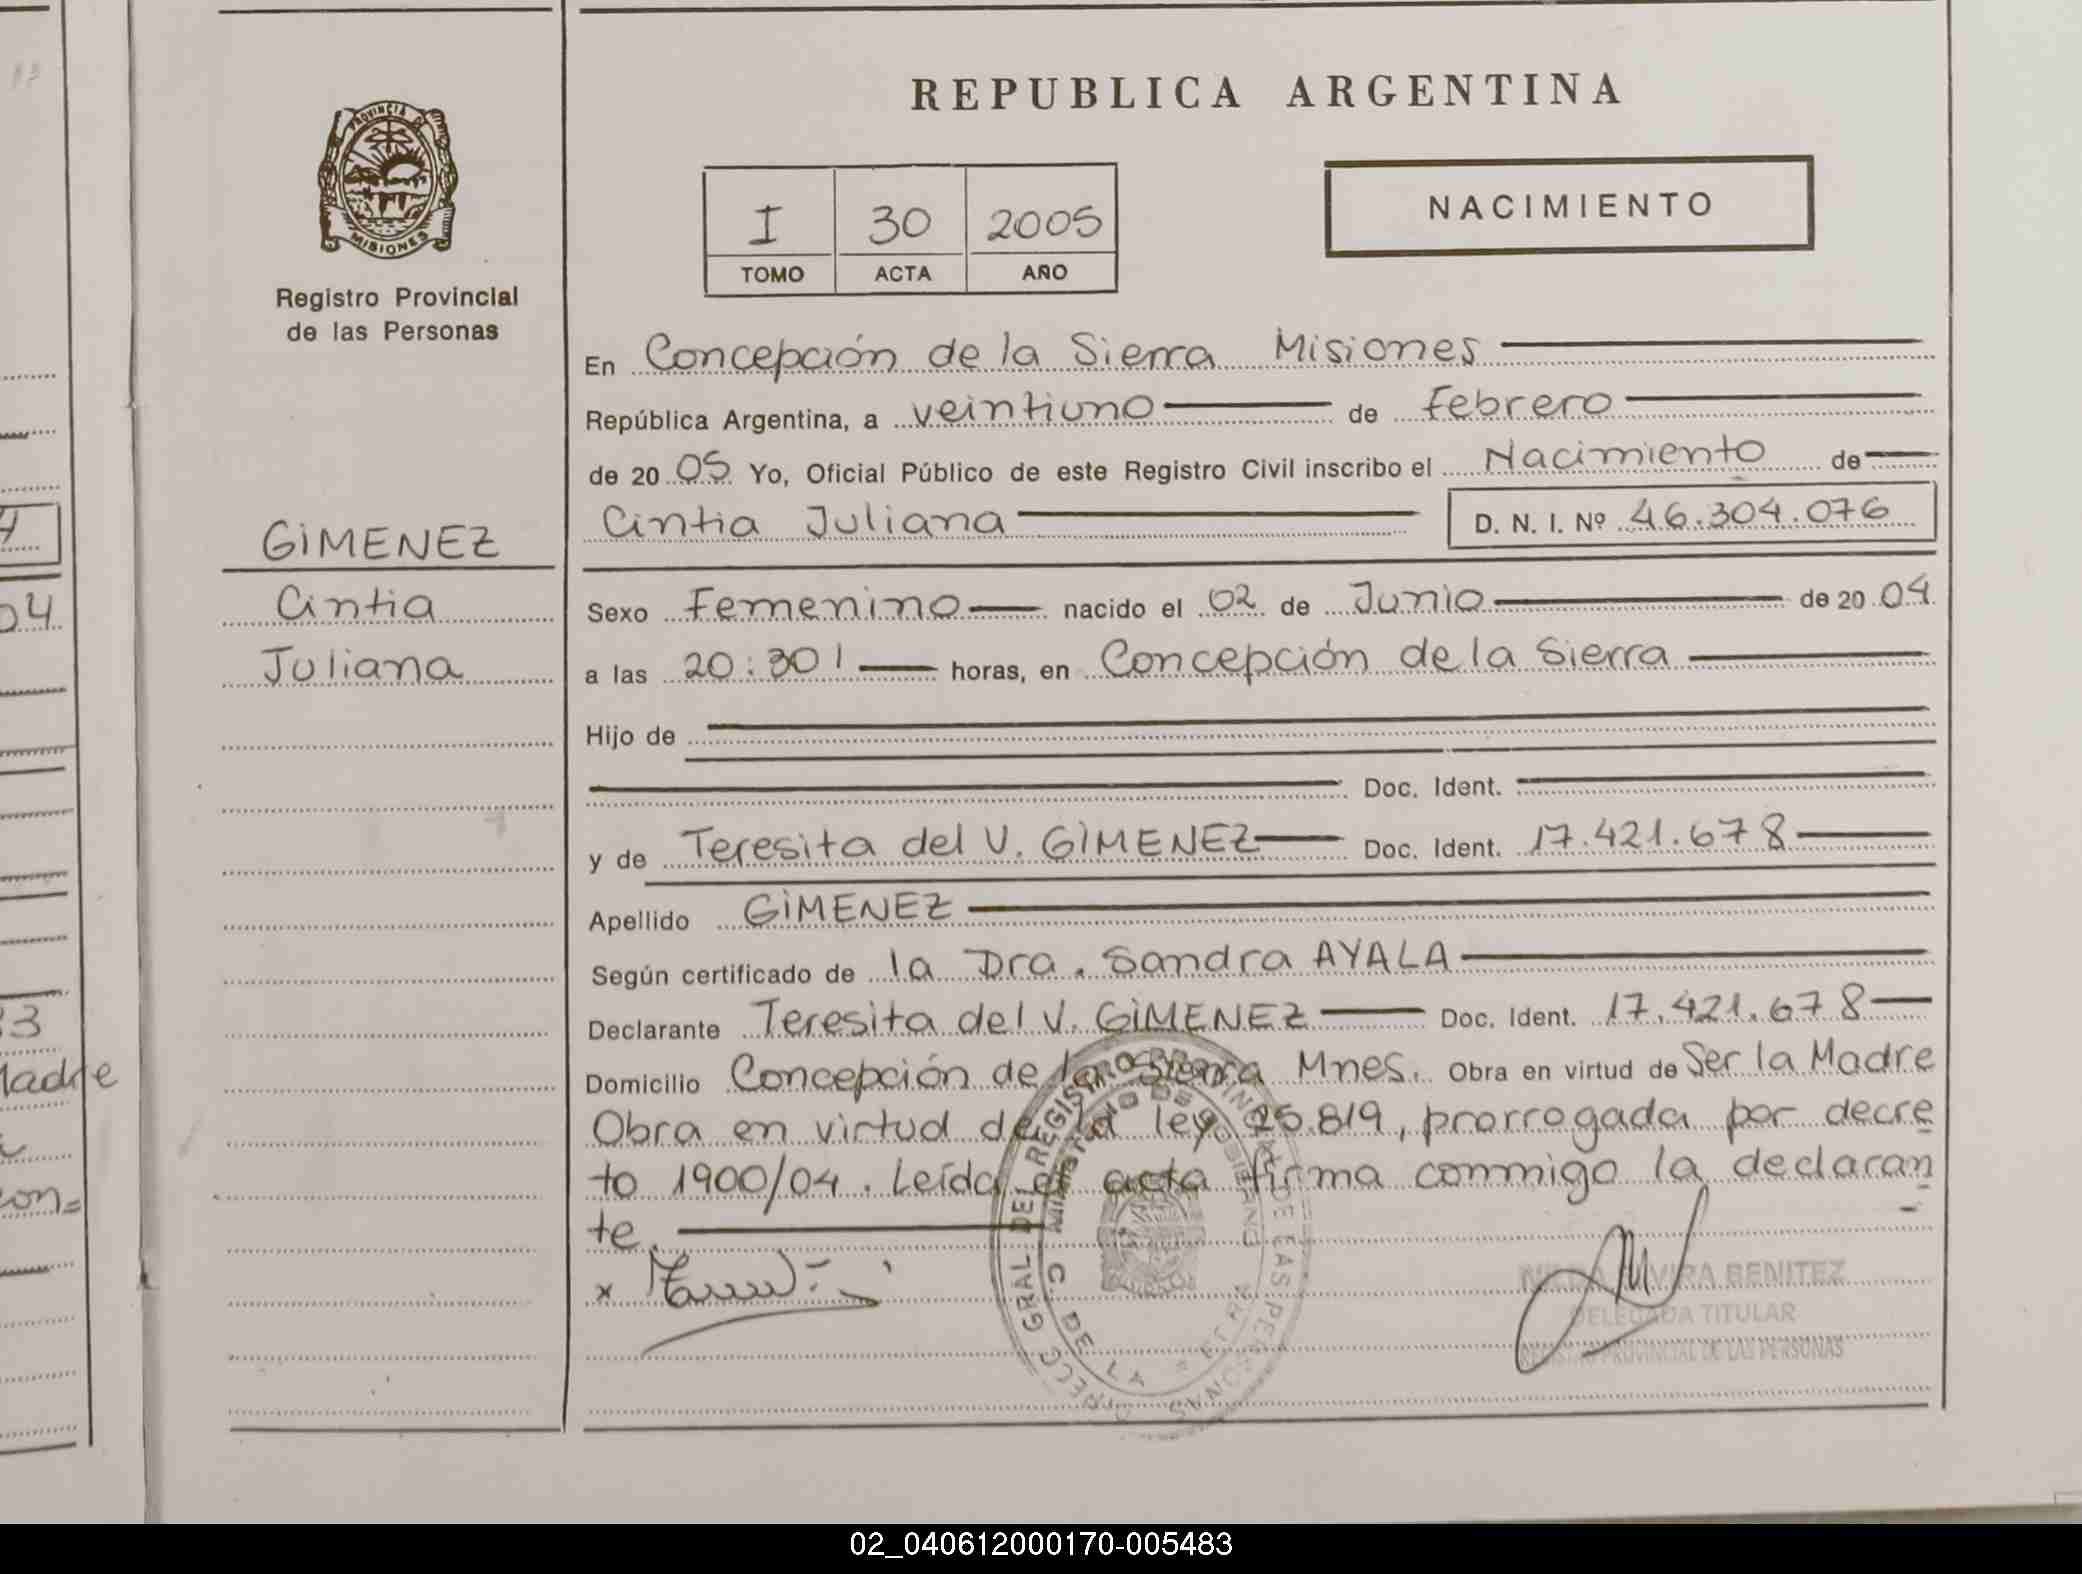 PROVINCIA DE
MISIONES
Registro Provincial
de las Personas
GIMENEZ
Cintia
Juliana
REPUBLICA ARGENTINA
I 30 2005
TOMO ACTA AÑO
NACIMIENTO
En Concepción de la Sierra Misiones
República Argentina, a veintiuno de Febrero
de 2005 Yo, Oficial Público de este Registro Civil inscribo el Nacimiento de
Cintia Juliana D. N. I. Nº 46.304.076
Sexo Femenino nacido el 02 de Junio de 2004
a las 20:30 horas, en Concepción de la Sierra
Hijo de
Doc. Ident.
y de Teresita del V. GIMENEZ Doc. Ident. 17.421.678
Apellido GIMENEZ
Según certificado de la Dra. Sandra AYALA
Declarante Teresita del V. GIMENEZ Doc. Ident. 17.421.678
Domicilio Concepción de la Sierra Mnes. Obra en virtud de Ser la Madre
Obra en virtud de la ley 25.819, prorrogada por decre
to 1900/04. Leída el acta firma conmigo la declaran
te.
x
NILDA ELVIRA BENITEZ
DELEGADA TITULAR
REGISTRO PROVINCIAL DE LAS PERSONAS
04
33
Madre
con=
02_040612000170-005483